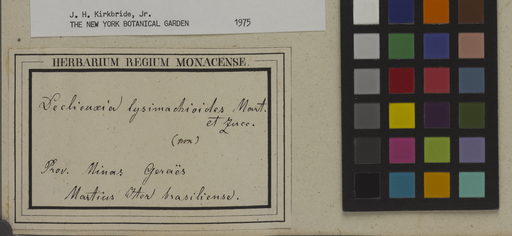 J. H. Kirkbride, Jr.
THE NEW YORK BOTANICAL GARDEN 1975
HERBARIUM REGIUM MONACENSE.
Declieuxia lysimachioides Mart.
et Zucc.
Prov. Minas Geraës
Martius Iter brasiliense.